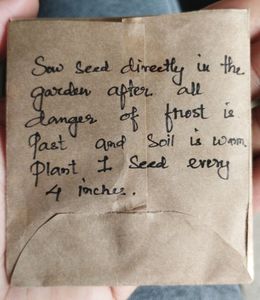 Sow seed directly in the
garden after all
danger of frost is
Past and Soil is warm.
Plant 1 Seed every
4 inches.